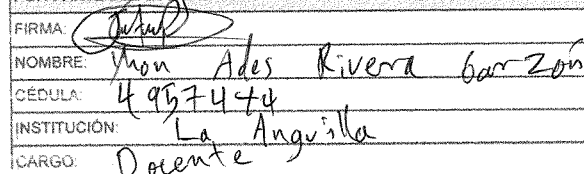 FIRMA:
NOMBRE: Yhon Ades Rivera Garzón
CÉDULA: 4957444
INSTITUCIÓN: La Anguilla
CARGO: Docente